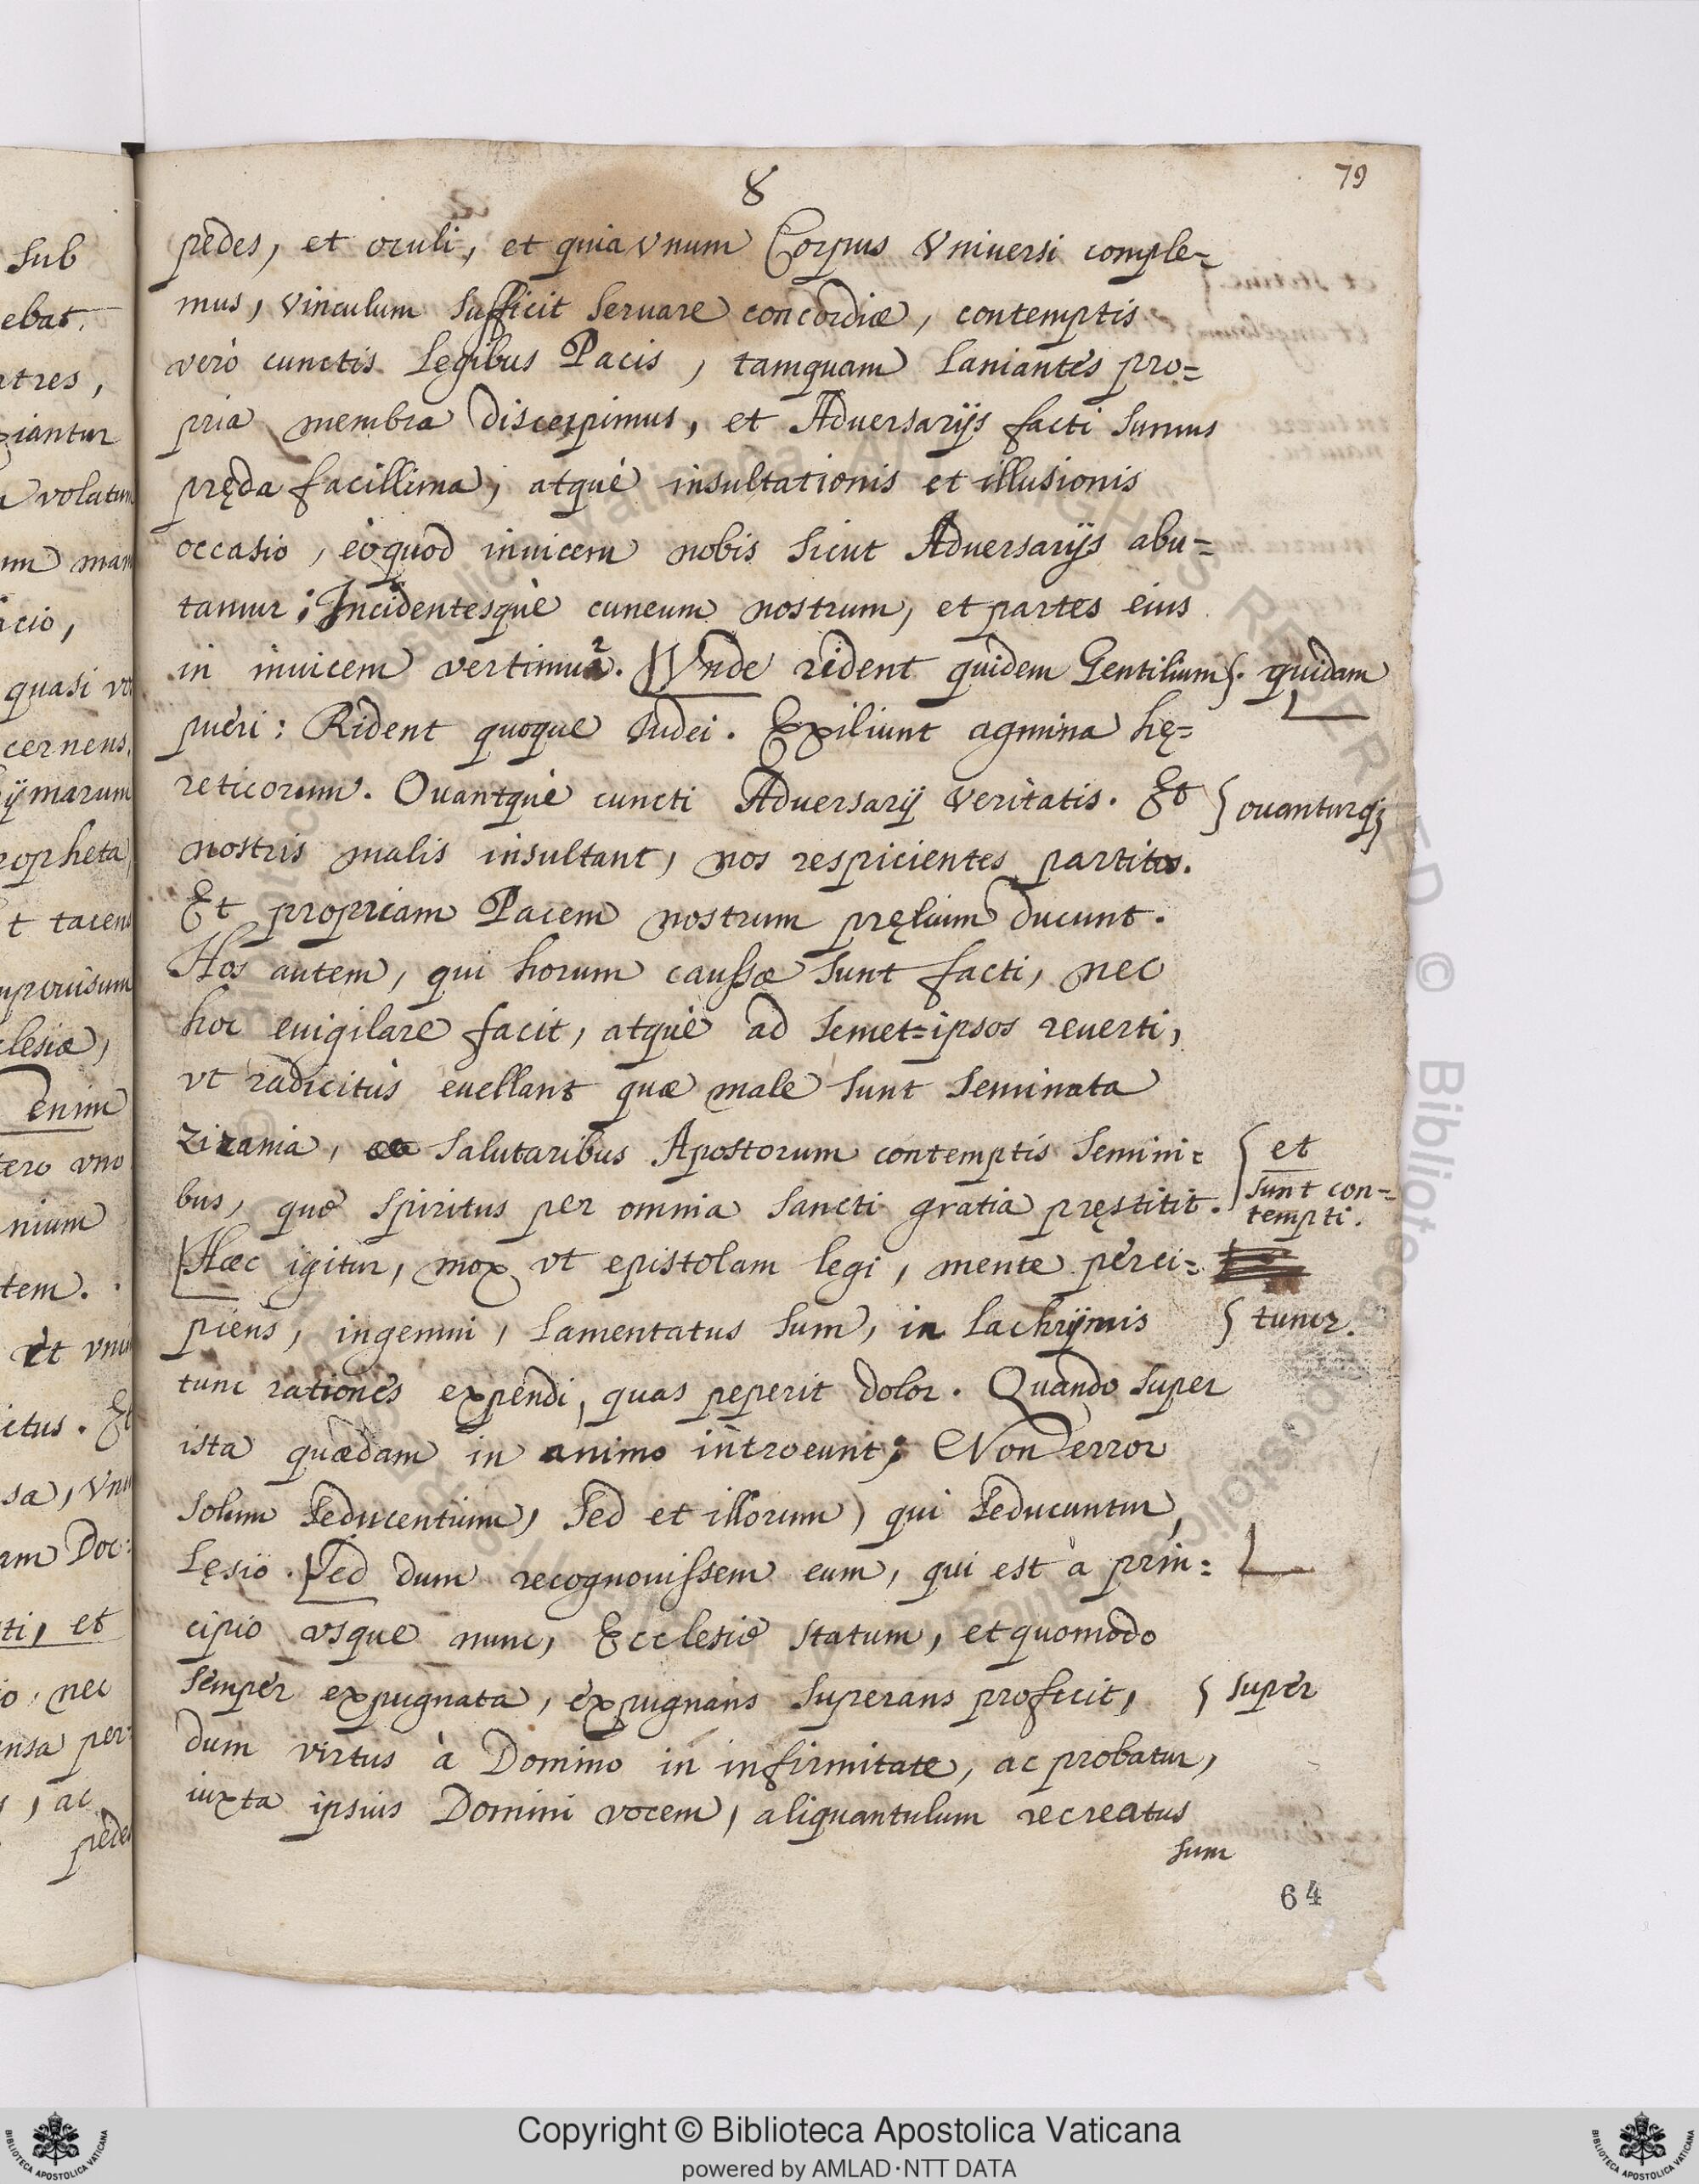 79
8
pedes, et oculi, et quia vnum Corpus Vniuersi comple=
mus, vinculum sufficit seruare concordiæ, contemptis
verò cunctis Legibus Pacis, tamquam Laniantes pro=
pria membra discerpimus, et Aduersarijs facti sumus
pręda facillima, atquè insultationis et illusionis
occasio, eòquod inuicem nobis sicut Aduersarijs abu=
tamur; Incidentesquè cuneum nostrum, et partes eius
in inuicem vertimur. Vnde rident quidem Gentilium
quidam
pueri: Rident quoque Iudei. Exiliunt agmina hę=
reticorum. Ouantquè cuncti Aduersarij veritatis. Et
ouanturq;
nostris malis insultant, nos respicientes partitos.
Et propriam Pacem nostrum pręlium ducunt.
Hos autem, qui horum caussæ sunt facti, nec
hoc euigilare facit, atquè ad semet=ipsos reuerti,
vt radicitùs euellant quæ male sunt seminata
zizania, salutaribus Apostorum contemptis semini=
et
sunt con=
tempti.
bus, quę spiritus per omnia sancti gratia pręstitit.
Hæc igitur, mox vt epistolam legi, mente perci=
piens, ingemui, lamentatus sum, in lachrijmis
tunc
tunc rationes expendi, quas peperit dolor. Quando super
ista quædam in animo introeunt; Non error
solum seducentium, sed et illorum, qui seducuntur,
Lęsio. Sed dum recognouissem eum, qui est à prin=
cipio vsque nunc, Ecclesię statum, et quomodo
semper expugnata, expugnans superans proficit,
super
dum virtus à Domino in infirmitate, ac probatur,
iuxta ipsius Domini vocem, aliquantulum recreatus
sum
64
sub
ebat.
atres,
volatum
quasi
cernens
ropheta
t tacens
clesiæ,
enim
vno
nium
tem.
ictus. Et
am Doc=
ti, et
nec
ensa per=
, ac
pedes
Copyright © Biblioteca Apostolica Vaticana
powered by AMLAD·NTT DATA
BIBLIOTECA APOSTOLICA VATICANA
BIBLIOTECA APOSTOLICA VATICANA